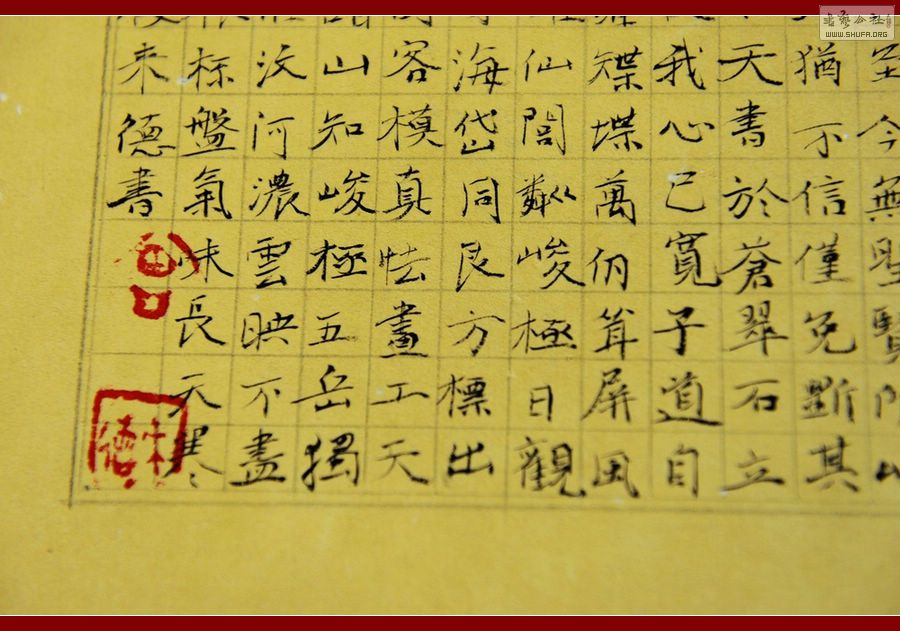 書藝公社
WWW.SHUFA.ORG
至今無聖賢
猶不信僅免斷其
天書於蒼翠石立
我心已寬子道自
堞萬仞聳屏風
仙閭粼峻極日觀
海岱同艮方標出
客模真怯畫工天
山知峻極五岳獨
汶河濃雲映不盡
标盤氣味長天寒
来德書